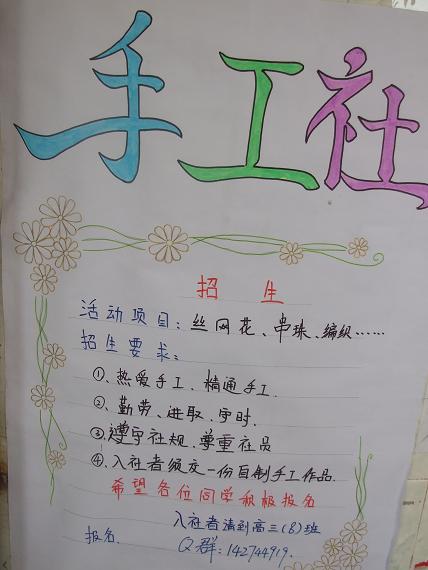 手工社
招生
活动项目：丝网花、串珠、编织……
招生要求：
①、热爱手工、精通手工.
②、勤劳、进取、守时.
③遵守社规、尊重社员
④、入社者须交一份自制手工作品.
希望各位同学积极报名
入社者请到高三(8)班
报名. Q群：142744919.